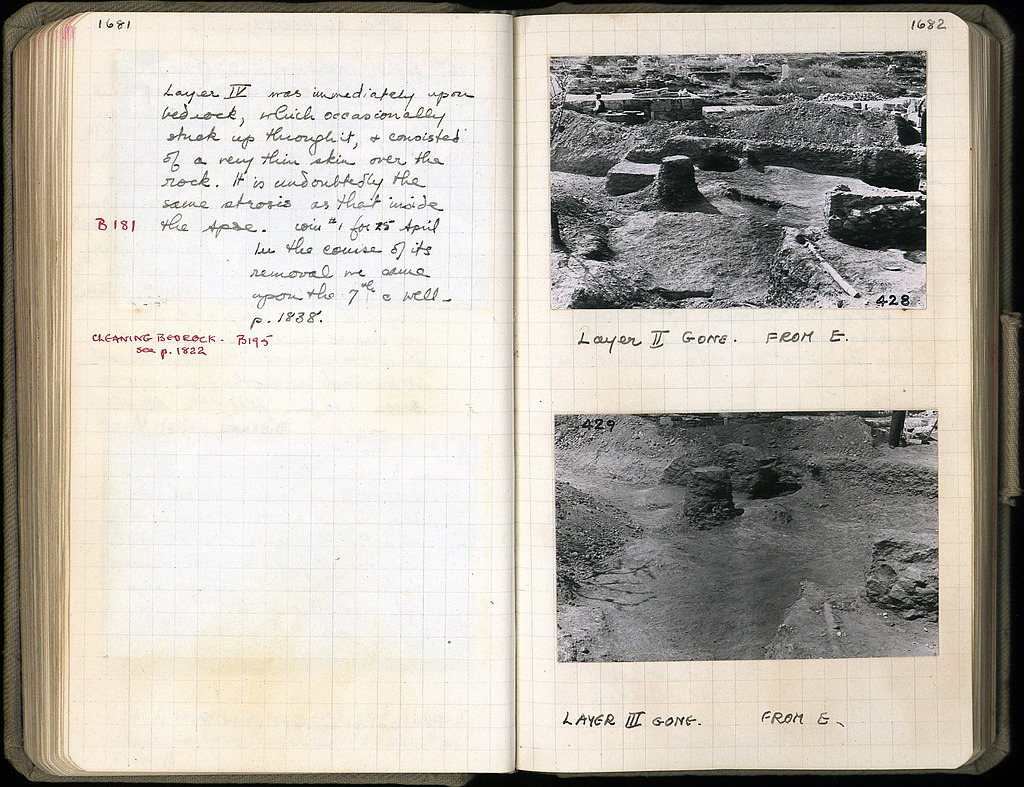 1681
Layer IV was immediately upon
bedrock, which occasionally
stuck up through it, & consisted
of a very thin skin over the
rock. It is undoubtedly the
same strosis as that inside
B 181 the Apse. coin #1 for 25 April
In the course of its
removal we came
upon the 7th c well -
p. 1838.
CLEANING BEDROCK - B195
see p. 1822
1682
428
Layer II GONE. FROM E.
429
LAYER III GONE. FROM E.